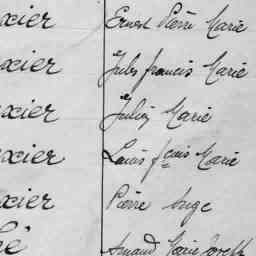 xier Ernest Pierre Marie
xier Jules francis Marie
xier Julien Marie
xier Louis fcois Marie
xier Pierre Ange
Armand Marie Joseph